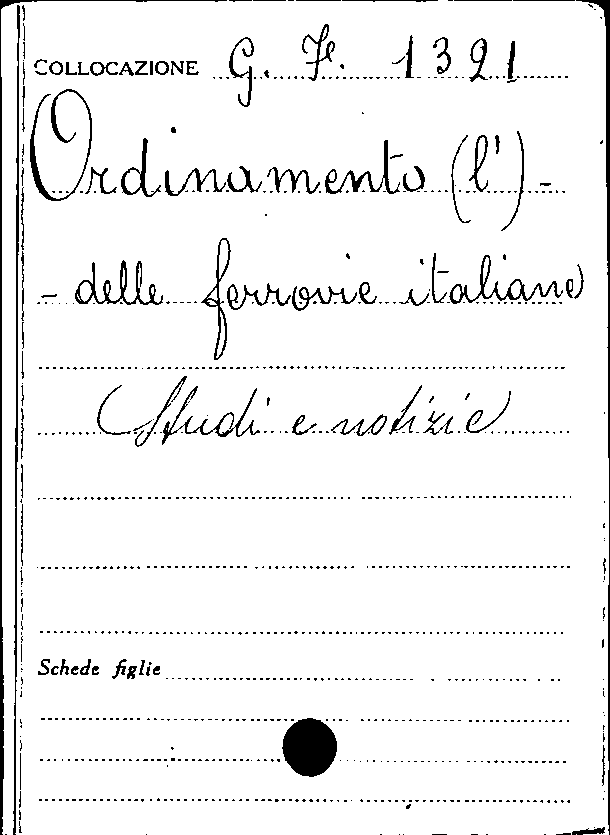 COLLOCAZIONE G. F. 1321
Ordinamento (l') -
- delle ferrovie italiane
(Studi e notizie)
Schede figlie